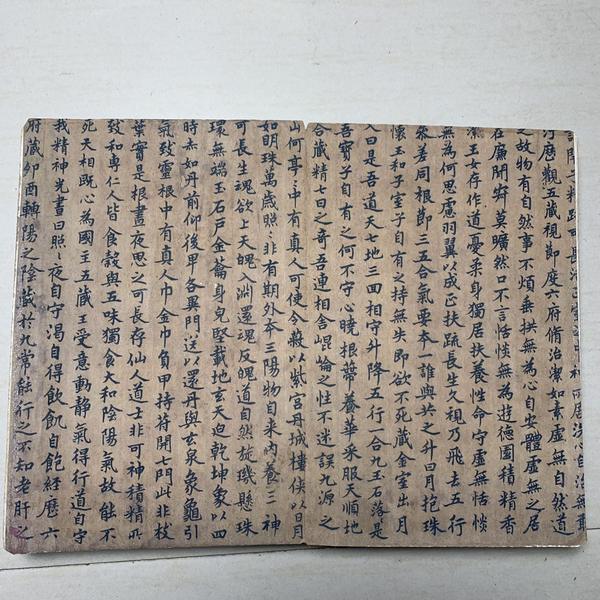 精路可長活正室之中神所居洗心自治無敢
汙歷觀五藏視節度六府脩治潔如素虛無自然道
之故物有自然事不煩垂拱無為心自安體虛無之居
在廉間寂莫曠然口不言恬惔無為遊德園積精香
潔玉女存作道憂柔身獨居扶養性命守虛無恬惔
無為何思慮羽翼以成正扶疏長生久視乃飛去五行
參差同根節三五合氣要本一誰與共之升日月抱珠
懷玉和子室子自有之持無失即欲不死藏金室出月
入日是吾道天七地三回相守升降五行一合九玉石落是
吾寶子自有之何不守心曉根蒂養華采服天順地
合藏精七日之奇吾連相合崐崘之性不迷誤九源之
山何亭〻中有真人可使令蔽以紫宮丹城樓俠以日月
如明珠萬歲照〻非有期外本三陽物自来內養三神
可長生魂欲上天魄入淵還魂反魄道自然抗璣懸珠
環無端玉石戶金籥身完堅載地玄天迫乾坤象以四
時赤如丹前仰後卑各異門送以還丹與玄泉象龜引
氣致靈根中有真人巾金巾負甲持符開七門此非枝
葉實是根晝夜思之可長存仙人道士非可神積精所
致和專仁人皆食穀與五味獨食大和陰陽氣故能不
死天相既心為國主五藏王受意動靜氣得行道自守
我精神光晝日照〻夜自守渴自得飲飢自飽經歷六
府藏卯酉轉陽之陰藏於九常能行之不知老肝之